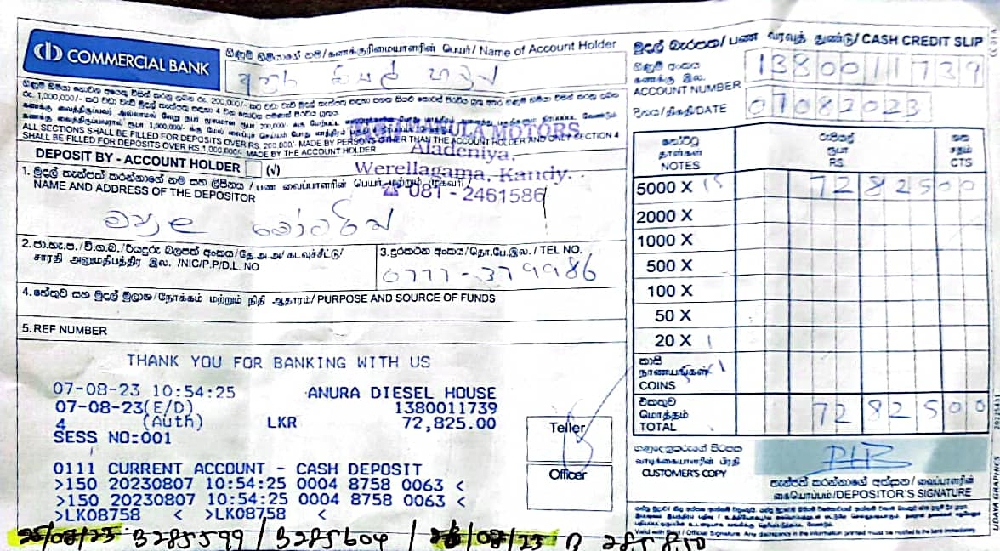 COMMERCIAL BANK
ගිණුම් හිමියාගේ නම/கணக்குரிமையாளரின் பெயர்/ Name of Account Holder
අනුර ඩීසල් හවුස්
මුදල් බැරපත/பண வரவுத் துண்டு/CASH CREDIT SLIP
ගිණුම් අංකය
கணக்கு இல.
ACCOUNT NUMBER
1380011739
දිනය/திகதி/DATE
07082023
ALL SECTIONS SHALL BE FILLED FOR DEPOSITS OVER RS. 200,000/- MADE BY PERSONS OTHER THAN THE ACCOUNT HOLDER AND ONLY SECTION 4
SHALL BE FILLED FOR DEPOSITS OVER RS.1,000,000/- MADE BY THE ACCOUNT HOLDER
MOTORS
Aladeniya,
Werellagama, Kandy.
☎ 081 - 2461586
DEPOSIT BY - ACCOUNT HOLDER (√)
NAME AND ADDRESS OF THE DEPOSITOR
මෝටර්ස්
සாரதி அனுமதிப்பத்திர இல. /NIC/P.P/D.L. NO
3.දුරකථන අංකය/தொ.பே.இல. / TEL NO.
0777-379986
4.හේතුව සහ මුදල් මූලාශ්‍ර/நோக்கம் மற்றும் நிதி ஆதாரம்/ PURPOSE AND SOURCE OF FUNDS
5. REF NUMBER
නෝට්ටු
தாள்கள்
NOTES
රුපියල්
ரூபா
RS.
ශත
சதம்
CTS
5000 X 15 72825 00
2000 X
1000 X
500 X
100 X
50 X
20 X 1
කාසි
நாணயங்கள்
COINS
එකතුව
மொத்தம்
TOTAL
72825 00
THANK YOU FOR BANKING WITH US
07-08-23 10:54:25 ANURA DIESEL HOUSE
07-08-23(E/D) 1380011739
4 (Auth) LKR 72,825.00
SESS NO:001
0111 CURRENT ACCOUNT - CASH DEPOSIT
>150 20230807 10:54:25 0004 8758 0063 <
>150 20230807 10:54:25 0004 8758 0063 <
>LK08758 < >LK08758 <
Teller
Officer
ගනුදෙනුකරුගේ පිටපත
வாடிக்கையாளரின் பிரதி
CUSTOMER'S COPY
තැන්පත් කරන්නාගේ අත්සන/ வைப்பாளரின்
கையொப்பம்/DEPOSITOR'S SIGNATURE
3285599 / 3285604 /